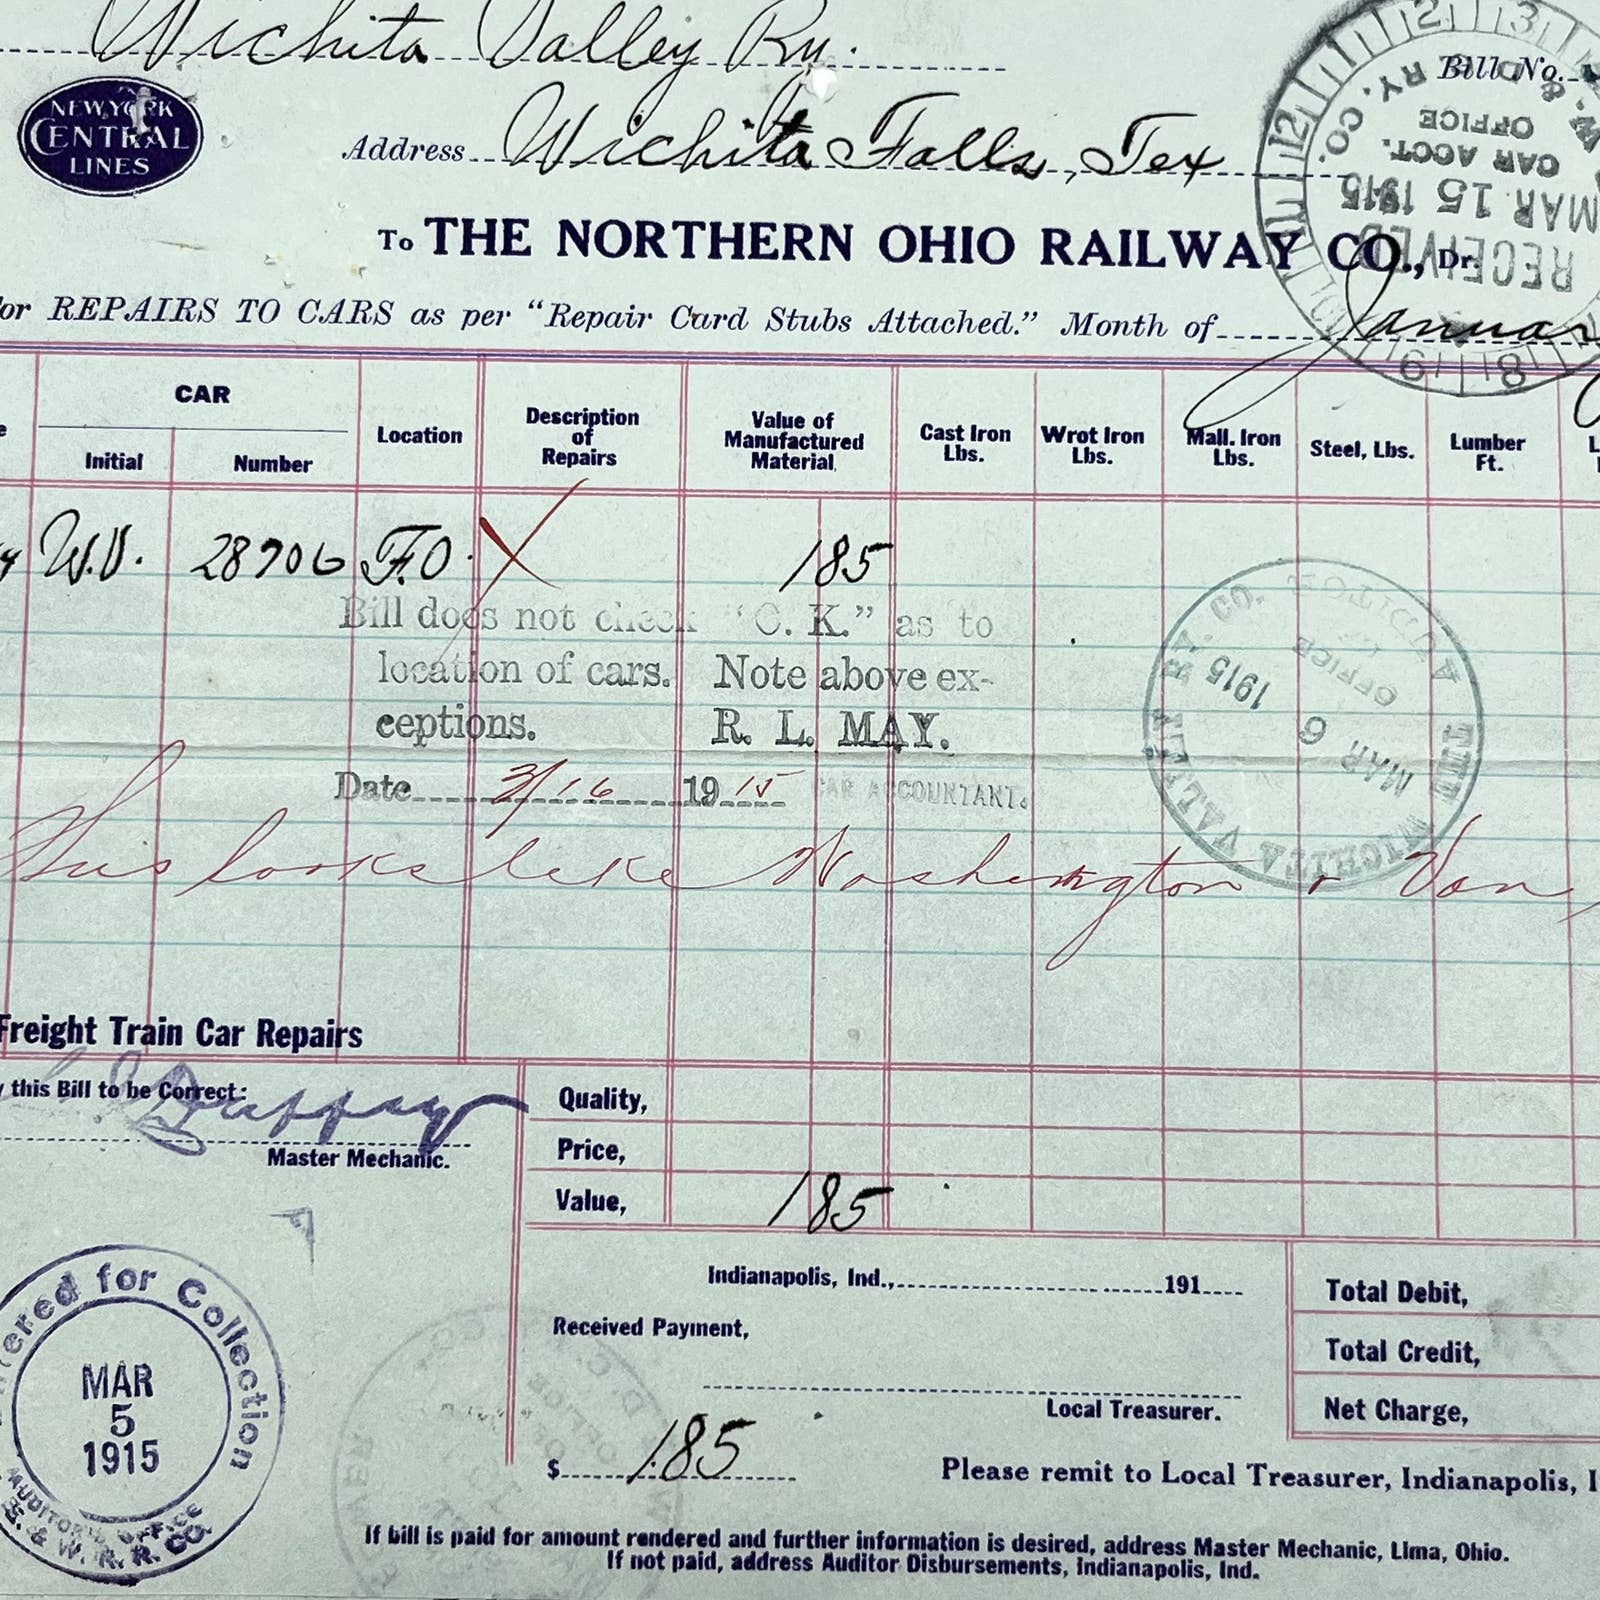 Wichita Valley Ry.
Bill No.
NEW YORK
CENTRAL
LINES
Address Wichita Falls, Tex
To THE NORTHERN OHIO RAILWAY CO., Dr.
RY. CO.
CAR ACCT.
OFFICE
MAR 15 1915
RECEIVED
or REPAIRS TO CARS as per "Repair Card Stubs Attached." Month of Januar
CAR
Initial Number Location Description of Repairs Value of Manufactured Material Cast Iron Lbs. Wrot Iron Lbs. Mall. Iron Lbs. Steel, Lbs. Lumber Ft.
W.V. 28706 F.O. X 185
Bill does not check "O. K." as to
location of cars. Note above ex-
ceptions. R. L. MAY.
Date 3/16 1915 CAR ACCOUNTANT.
THE WICHITA VALLEY RY. CO.
AUDITOR
OFFICE
MAR 6 1915
This looks like Washington & Van
Freight Train Car Repairs
this Bill to be Correct:
Duffey
Master Mechanic.
Quality,
Price,
Value, 185
tered for Collection
MAR
5
1915
AUDITOR'S OFFICE
& W. R. R. CO.
Indianapolis, Ind., 191
Received Payment,
Local Treasurer.
Total Debit,
Total Credit,
Net Charge,
$ 1.85
Please remit to Local Treasurer, Indianapolis, I
If bill is paid for amount rendered and further information is desired, address Master Mechanic, Lima, Ohio.
If not paid, address Auditor Disbursements, Indianapolis, Ind.